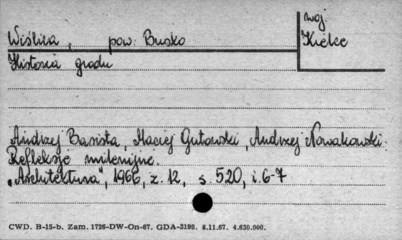 Wiślica, pow. Busko
woj.
Kielce
Historia grodu
Andrzej Basista, Maciej Gutowski, Andrzej Nowakowski:
Refleksje milenijne.
"Architektura", 1966, z. 12, s 520, i. 6-7
CWD. B-15-b. Zam. 1726-DW-On-67. GDA-3198. 8.11.67. 4.630.000.